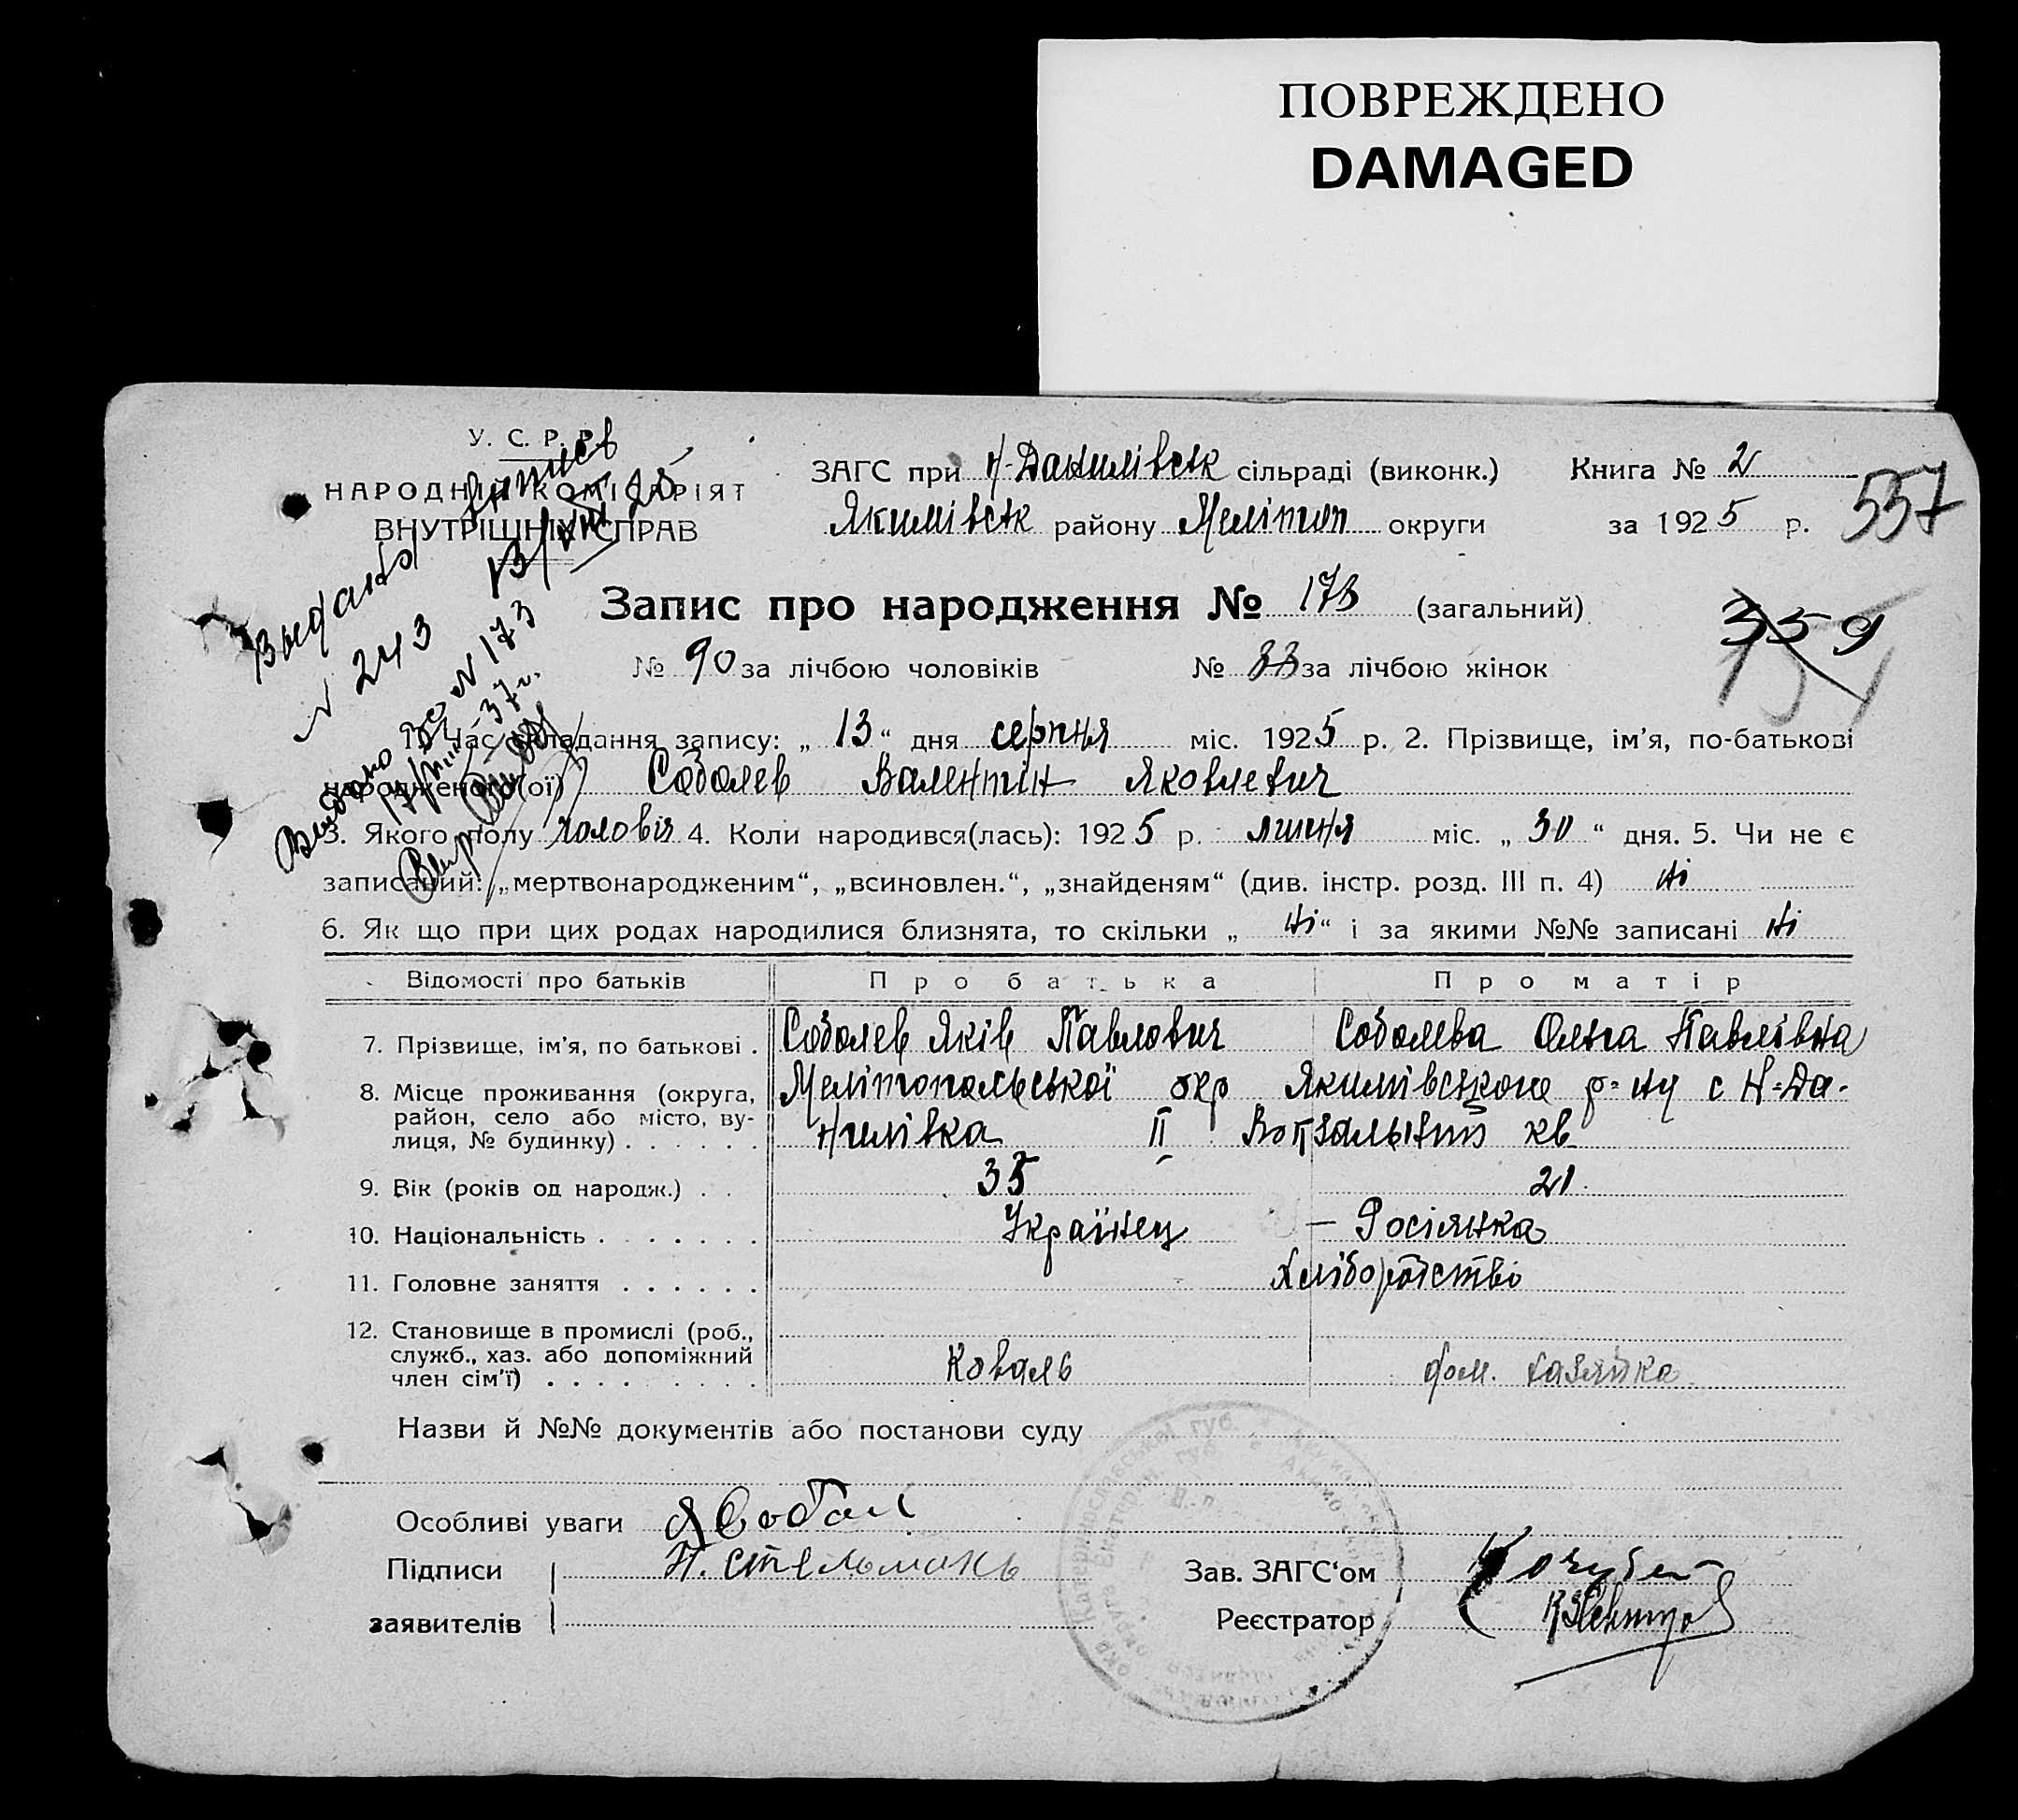 ПОВРЕЖДЕНО
DAMAGED
У. С. Р. Р.
НАРОДНІЙ КОМІСАРІЯТ
ВНУТРІШНІХ СПРАВ
ЗАГС при Н-Данилівськ сільраді (виконк.) Книга № 2
Якимівськ району Мелітоп округи за 1925 р.
557
Запис про народження № 173 (загальний)
359
№ 90 за лічбою чоловіків № 83 за лічбою жінок
Выдана
№ 243 13/VIII 25
Видано № 173
1. Час складання запису: „ 13 “ дня серпня міс. 1925 р. 2. Прізвище, ім’я, по-батькові
народженого(ої) Соболев Валентін Яковлевич
3. Якого полу чоловіч 4. Коли народився(лась): 1925 р. липня міс. „ 30 “ дня. 5. Чи не є
записаний: „мертвонародженим“, „всиновлен.“, „знайденям“ (див. інстр. розд. III п. 4) ні
6. Як що при цих родах народилися близнята, то скільки „ ні “ і за якими №№ записані ні
Відомості про батьків Про батька Про матір
7. Прізвище, ім’я, по батькові . Соболев Яків Павлович Соболева Ольга Павлівна
8. Місце проживання (округа, Мелітопольської окр Якимівського р-ну с Н-Да-
район, село або місто, ву-
лиця, № будинку) . . . . . . нилівка II Вокзальний кв
9. Вік (років од народж.) . . 35 21
10. Національність . . . . . . . Українец — Росіянка
11. Головне заняття . . . . . . Хліборобство
12. Становище в промислі (роб.,
служб., хаз. або допоміжний Коваль дом. хазяйка
член сім’ї) . . . . . . . . .
Назви й №№ документів або постанови суду
Особливі уваги Я Собол
Підписи Н. Стельмахь Зав. ЗАГС‘ом Кочубей
заявителів Реєстратор